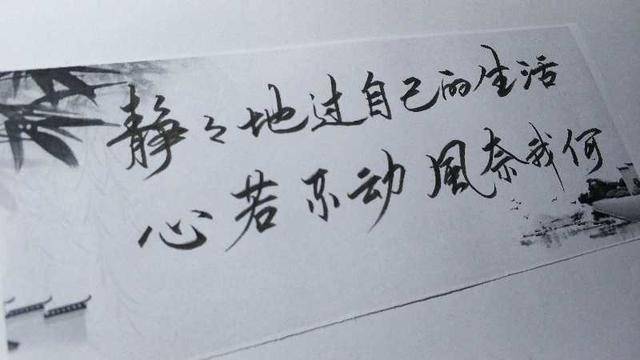 静々地过自己的生活
心若不动風奈我何